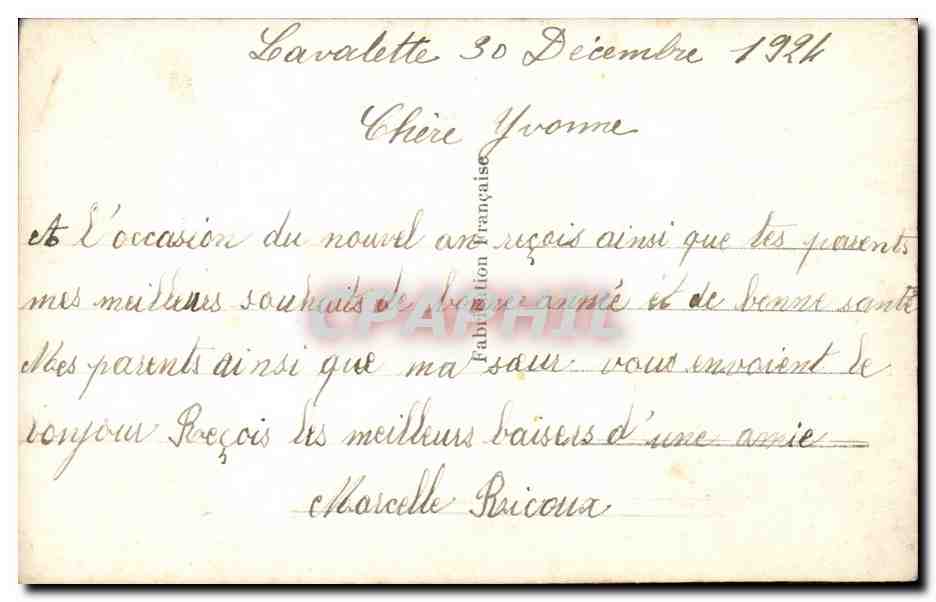 Lavalette 30 Décembre 1924
Chère Yvonne
A l'occasion du nouvel an reçois ainsi que tes parents
mes meilleurs souhaits de bonne année et de bonne santé
Mes parents ainsi que ma sœur vous envoient le
bonjour Reçois les meilleurs baisers d'une amie
Marcelle Ricoux
Fabrication Française
CPAPHIL